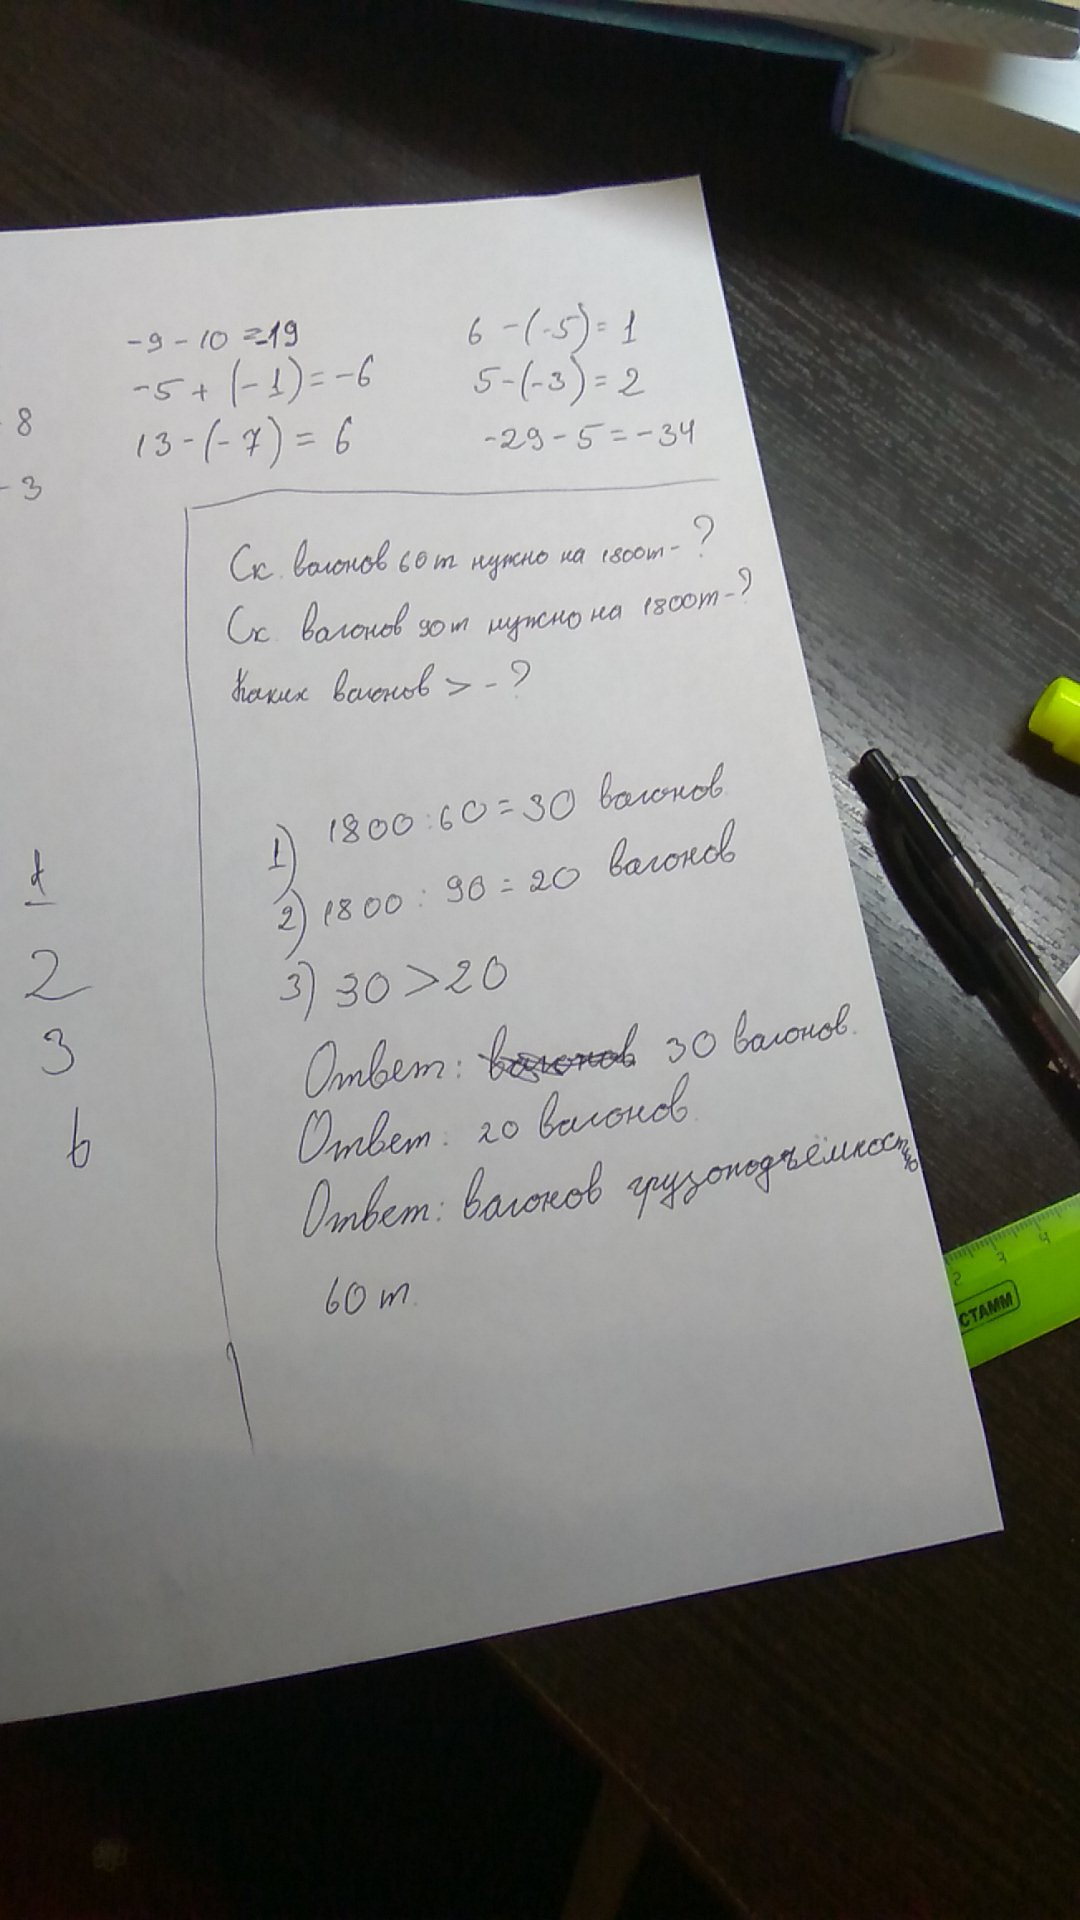 -9 - 10 = -19
-5 + (-1) = -6
13 - (-7) = 6
6 - (-5) = 1
5 - (-3) = 2
-29 - 5 = -34
- 8
- 3
Ск. вагонов 60т нужно на 1800т - ?
Ск. вагонов 90т нужно на 1800т - ?
Каких вагонов > - ?
1) 1800 : 60 = 30 вагонов
2) 1800 : 90 = 20 вагонов
3) 30 > 20
Ответ: вагонов 30 вагонов.
Ответ: 20 вагонов.
Ответ: вагонов грузоподъёмностью
60 т.
2
3
6
2 3 4
СТАММ